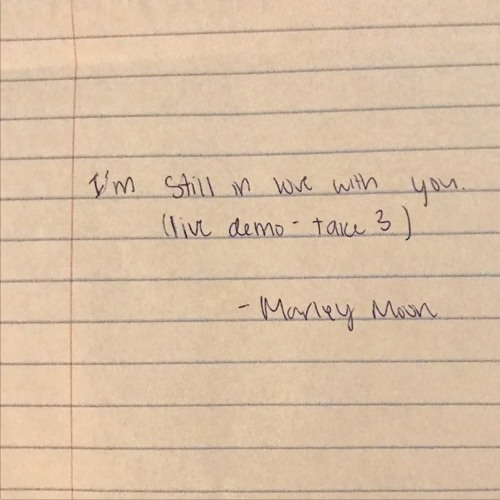 I'm still in love with you.
(live demo - take 3)
- Marley Moon